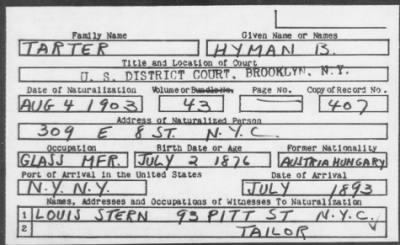 Family Name Given Name or Names
TARTER HYMAN B.
Title and Location of Court
U. S. DISTRICT COURT, BROOKLYN, N.Y.
Date of Naturalization Volume or Bundle No. Page No. Copy of Record No.
AUG 4 1903 43 407
Address of Naturalized Person
309 E 8 ST. N.Y.C.
Occupation Birth Date or Age Former Nationality
GLASS MFR. JULY 2 1876 AUSTRIA HUNGARY
Port of Arrival in the United States Date of Arrival
N.Y. N.Y. JULY 1893
Names, Addresses and Occupations of Witnesses To Naturalization
1 LOUIS STERN 93 PITT ST N.Y.C.
2 TAILOR